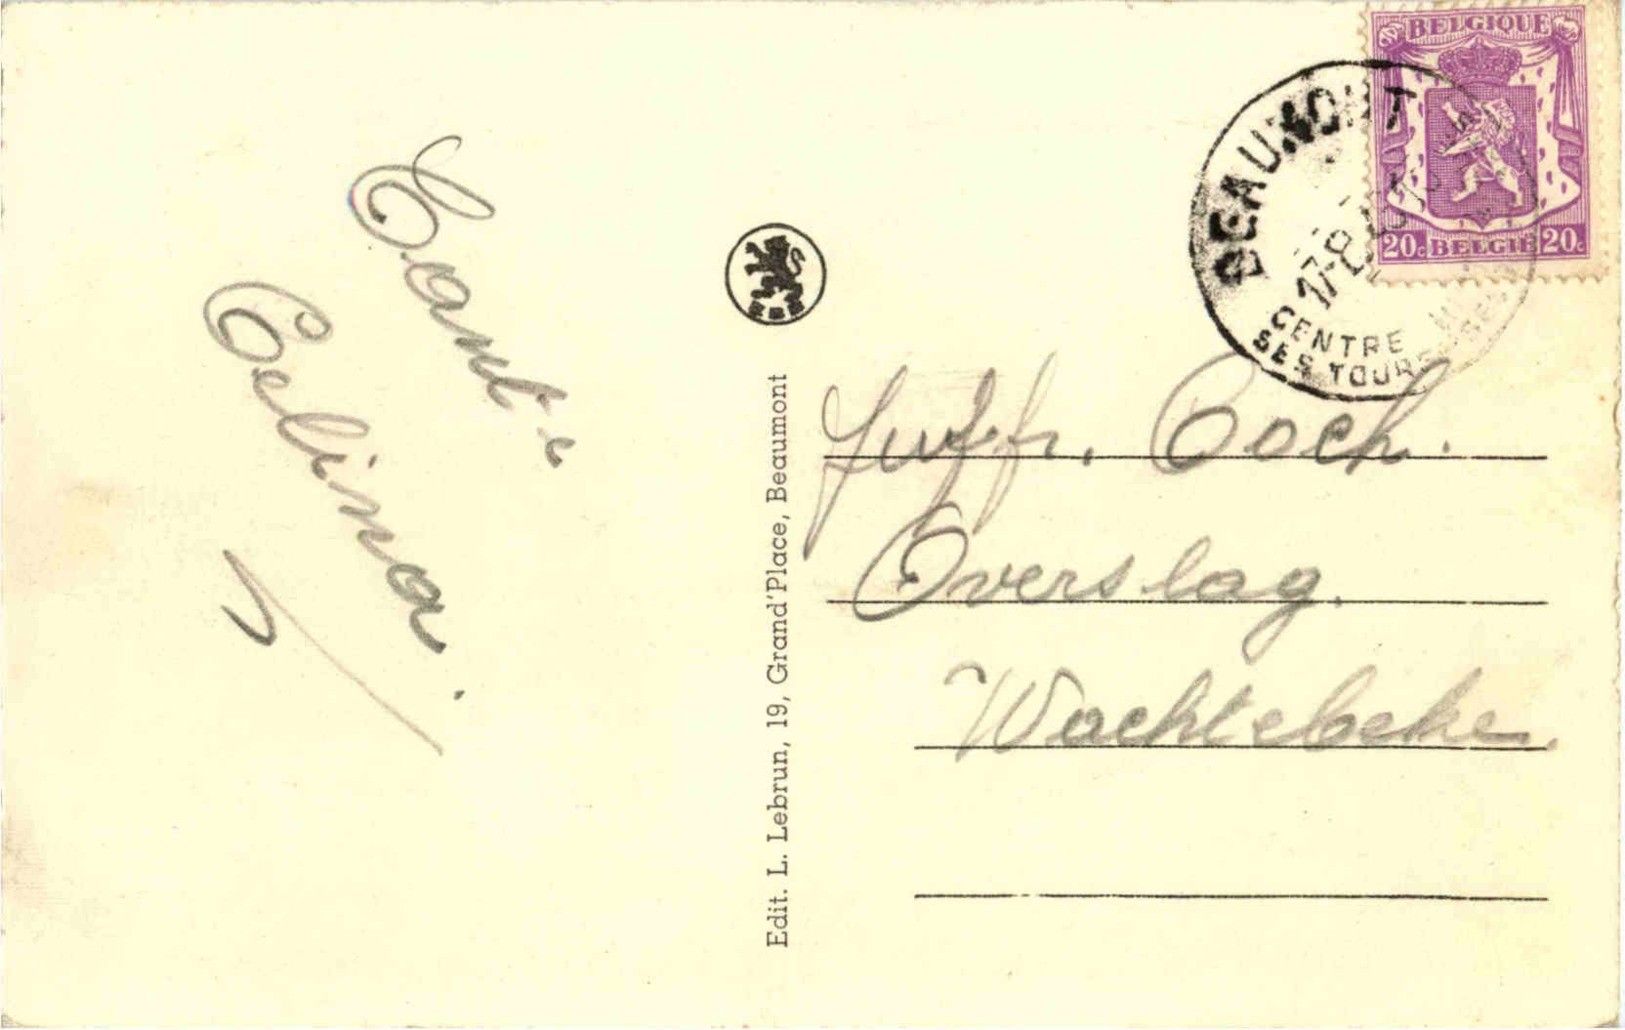 Tante
Celina.
Edit. L. Lebrun, 19, Grand'Place, Beaumont
BELGIQUE
20c BELGIE 20c
BEAUMONT
17-8
CENTRE
SES TOURS
Juffr. Coch.
Overslag.
Wachtebeke.